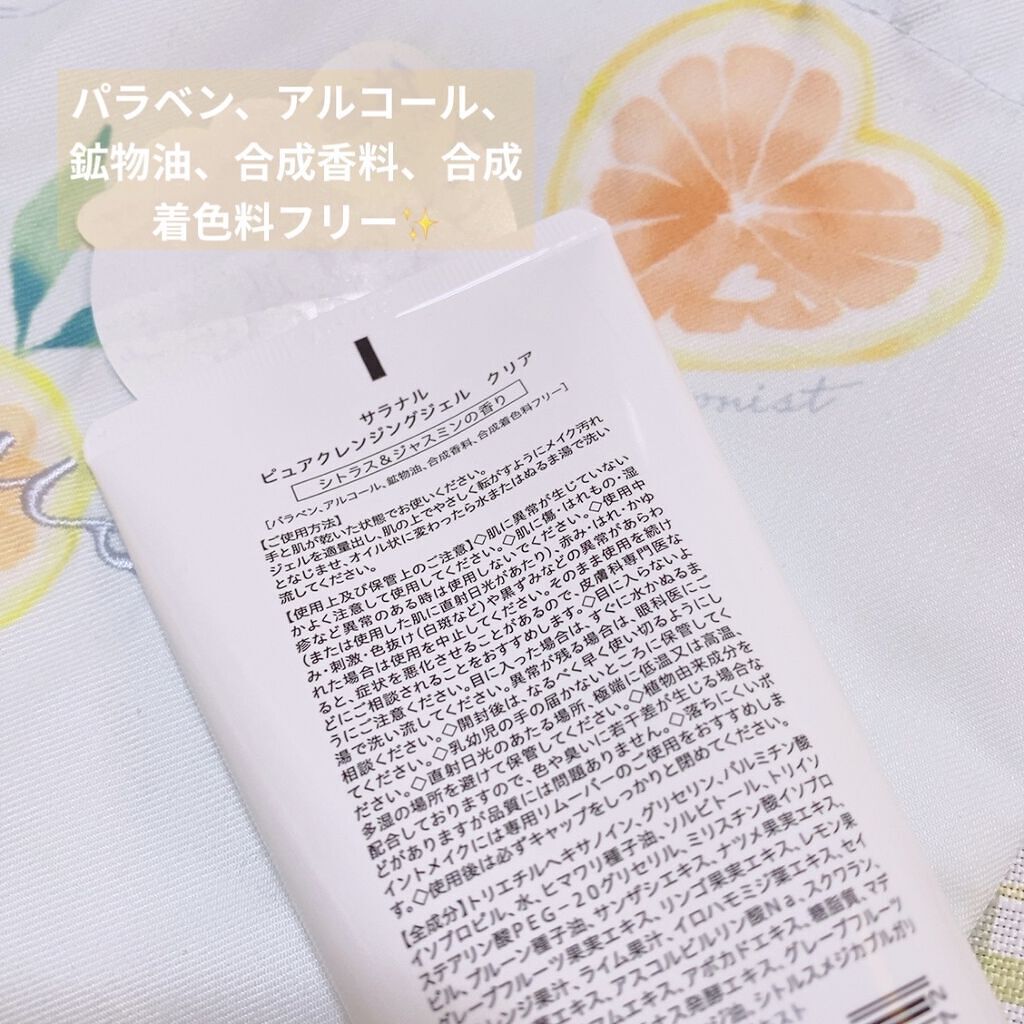 パラベン、アルコール、
鉱物油、合成香料、合成
着色料フリー✨
onist
サラナル
ピュアクレンジングジェル クリア
シトラス&ジャスミンの香り
[パラベン、アルコール、鉱物油、合成香料、合成着色料フリー]
【ご使用方法】
手と肌が乾いた状態でお使いください。
ジェルを適量出し、肌の上でやさしく転がすようにメイク汚れ
となじませ、オイル状に変わったら水またはぬるま湯で洗い
流してください。
【使用上及び保管上のご注意】◇肌に異常が生じていない
かよく注意して使用してください。◇肌に傷・はれもの・湿
疹など異常のある時は使用しないでください。◇使用中
(または使用した肌に直射日光があたり)、赤み・はれ・かゆ
み・刺激・色抜け(白斑など)や黒ずみなどの異常があらわ
れた場合は使用を中止してください。そのまま使用を続け
ると、症状を悪化させることがあるので、皮膚科専門医な
どにご相談されることをおすすめします。◇目に入らないよ
うにご注意ください。目に入った場合は、すぐに水かぬるま
湯で洗い流してください。異常が残る場合は、眼科医にご
相談ください。◇開封後は、なるべく早く使い切るようにし
てください。◇乳幼児の手の届かないところに保管してく
ださい。◇直射日光のあたる場所、極端に低温又は高温、
多湿の場所を避けて保管してください。◇植物由来成分を
配合しておりますので、色や臭いに若干差が生じる場合な
どがありますが品質には問題ありません。◇落ちにくいポ
イントメイクには専用リムーバーのご使用をおすすめしま
す。◇使用後は必ずキャップをしっかりと閉めてください。
【全成分】トリエチルヘキサノイン、グリセリン、パルミチン酸
イソプロピル、水、ヒマワリ種子油、ソルビトール、トリイソ
ステアリン酸PEG-20グリセリル、ミリスチン酸イソプロ
ピル、プルーン種子油、サンザシエキス、ナツメ果実エキス、
グレープフルーツ果実エキス、リンゴ果実エキス、レモン果
レンジ果汁、ライム果汁、イロハモミジ葉エキス、セイ
エキス、アスコルビルリン酸Na、スクワラン、
ムエキス、アボカドエキス、糖脂質、マデ
ナス発酵エキス、グレープフルーツ
ジ油、シトルスメジカブルガリ
スト